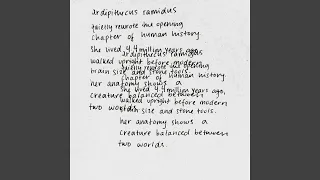 ardipithecus ramidus
quietly rewrote the opening
chapter of human history.
she lived 4.4 million years ago,
walked upright before modern
brain size and stone tools.
her anatomy shows a
creature balanced between
two worlds.
ardipithecus ramidus
quietly rewrote the opening
chapter of human history
she lived 4.4 million years ago,
walked upright before modern
brain size and stone tools.
her anatomy shows a
creature balanced between
two worlds.